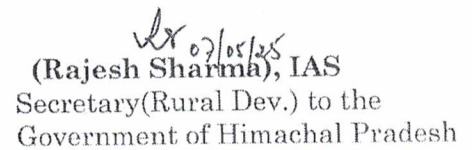 07/05/25
(Rajesh Sharma), IAS
Secretary(Rural Dev.) to the
Government of Himachal Pradesh